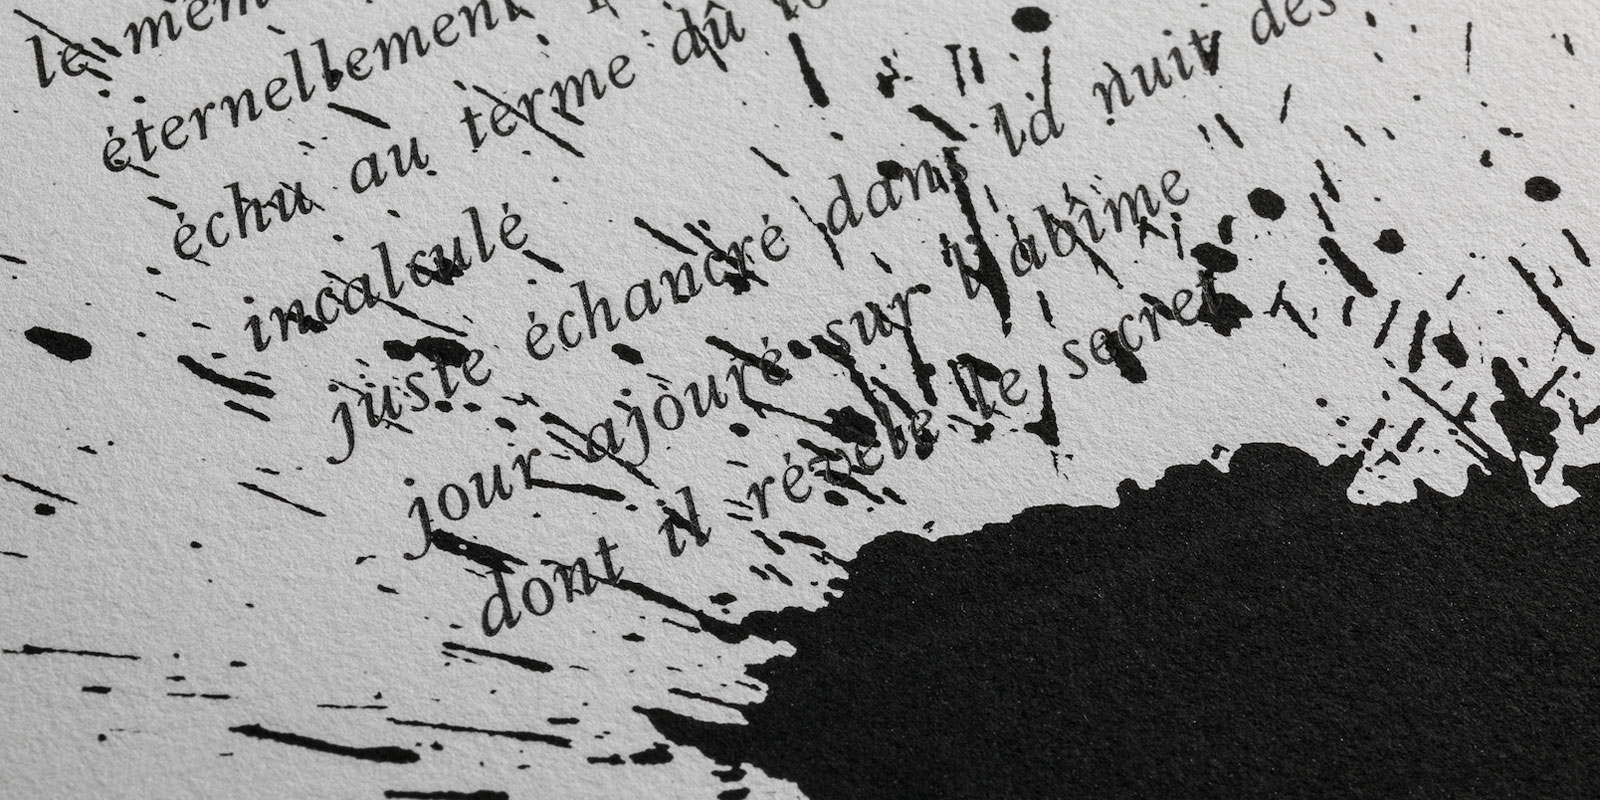 le mêm
éternellement
échu au terme dû
incalculé
juste échancré dans la nuit des
jour ajouré sur l'abîme
dont il révèle le secret